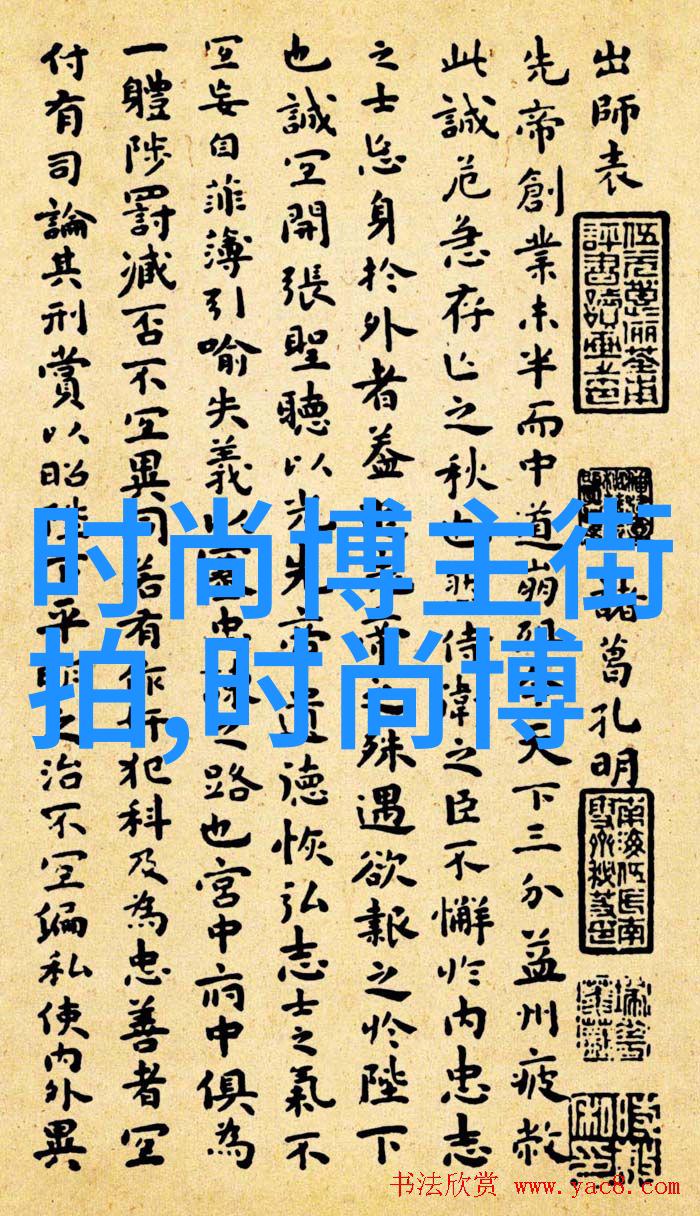 出師表
諸葛孔明
先帝創業未半而中道崩殂今天下三分益州疲敝
此誠危急存亡之秋也然侍衛之臣不懈於內忠志
之士忘身於外者蓋追先帝之殊遇欲報之於陛下
也誠宜開張聖聽以光先帝遺德恢弘志士之氣不
宜妄自菲薄引喻失義以塞忠諫之路也宮中府中俱為
一體陟罰臧否不宜異同若有作奸犯科及為忠善者宜
付有司論其刑賞以昭陛下平明之治不宜偏私使內外異
时尚博主街
拍,时尚博
书法欣赏 www.yac8.com